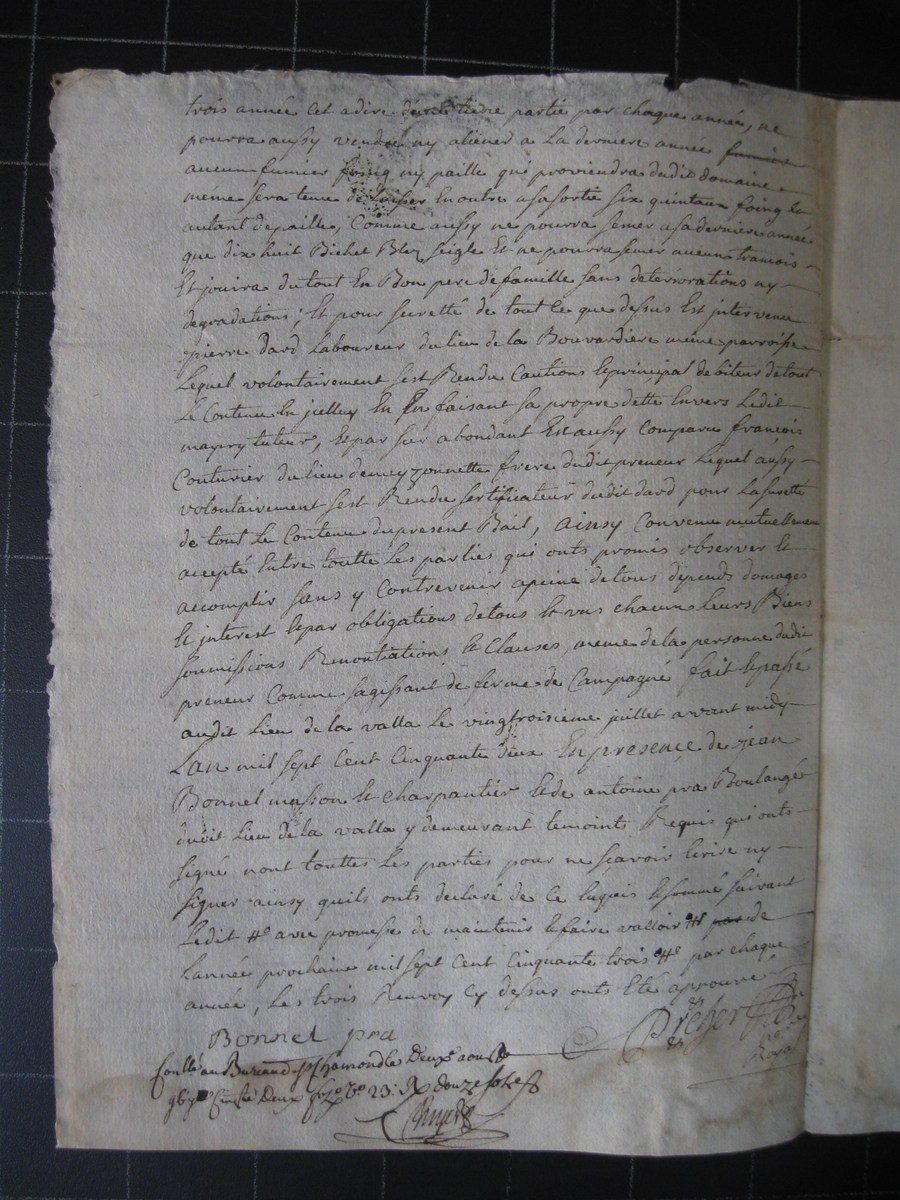 trois année cet adire d'une tiere partie par chaque année, ne
pourra aussy vendre ny aliener a la derniere année fumiere
aucun fumier foing ny paille qui proviendra dudit domaine
même sera tenu de laisser En outre a sa sortie six quintaux foing le
autant de paille, Comme aussy ne pourra semer a sa derniere année
que dix huit Bichet Blez seigle Et ne pourra semer aucuns tramois
Et jouira du tout En Bon pere de famille sans deteriorations ny
degradations; Et pour suretté de tout le que dessus Est jntervenu
pierre dard Laboureur du lieu de la Bouvardiere même parroisse
Lequel volontairement sest Rendu Cautions & principal debiteur de tout
Le Contenu En jcelluy En En faisant sa propre dette Envers Ledit
mayry tuteur, Et par sur abondant En aussy Comparu françois
Couturier du lieu de meyzonnette frere dudit preneur Lequel aussy
volontairement sest Rendu sertificateur dudit dard pour la suretté
de tout Le Contenu du present Bail, ainsy Convenu mutuellement
accepté Entre toutte Les parties qui onts promis observer &
accomplir sans y Contrevenir apeine de tous dépends domages
Et jnterest & par obligations de tous & vns chacuns Leurs Biens
soumissions Renontiations & Clauses, meme de la personne dudit
preneur Comme sagissant de ferme de Campagne fait & passé
audit Lieu de la valla Le vingtroisieme juillet avant midy
Lan mil sept Cent Cinquante deux En presence de jean
Bonnel masson & charpantier & de antoine pra Boulangé
dudit Lieu de la valla y demeurant temoints Requis qui onts
signé nont touttes Les parties pour ne sçavoir Ecrire ny
signer ainsy quils onts declaré de ce Enquis & sommé suivant
Ledit #e avec promesse de maintenir & faire valloir #e par de
Lannée prochaine mil sept Cent Cinquante trois #e par chaque
année, Les trois Renvoy Cy dessus onts Eté aprouvé
Bonnel pra
Conllé au Bureau St Chamond le Deuxe aoust
Cinqte Deux 23 douze sols